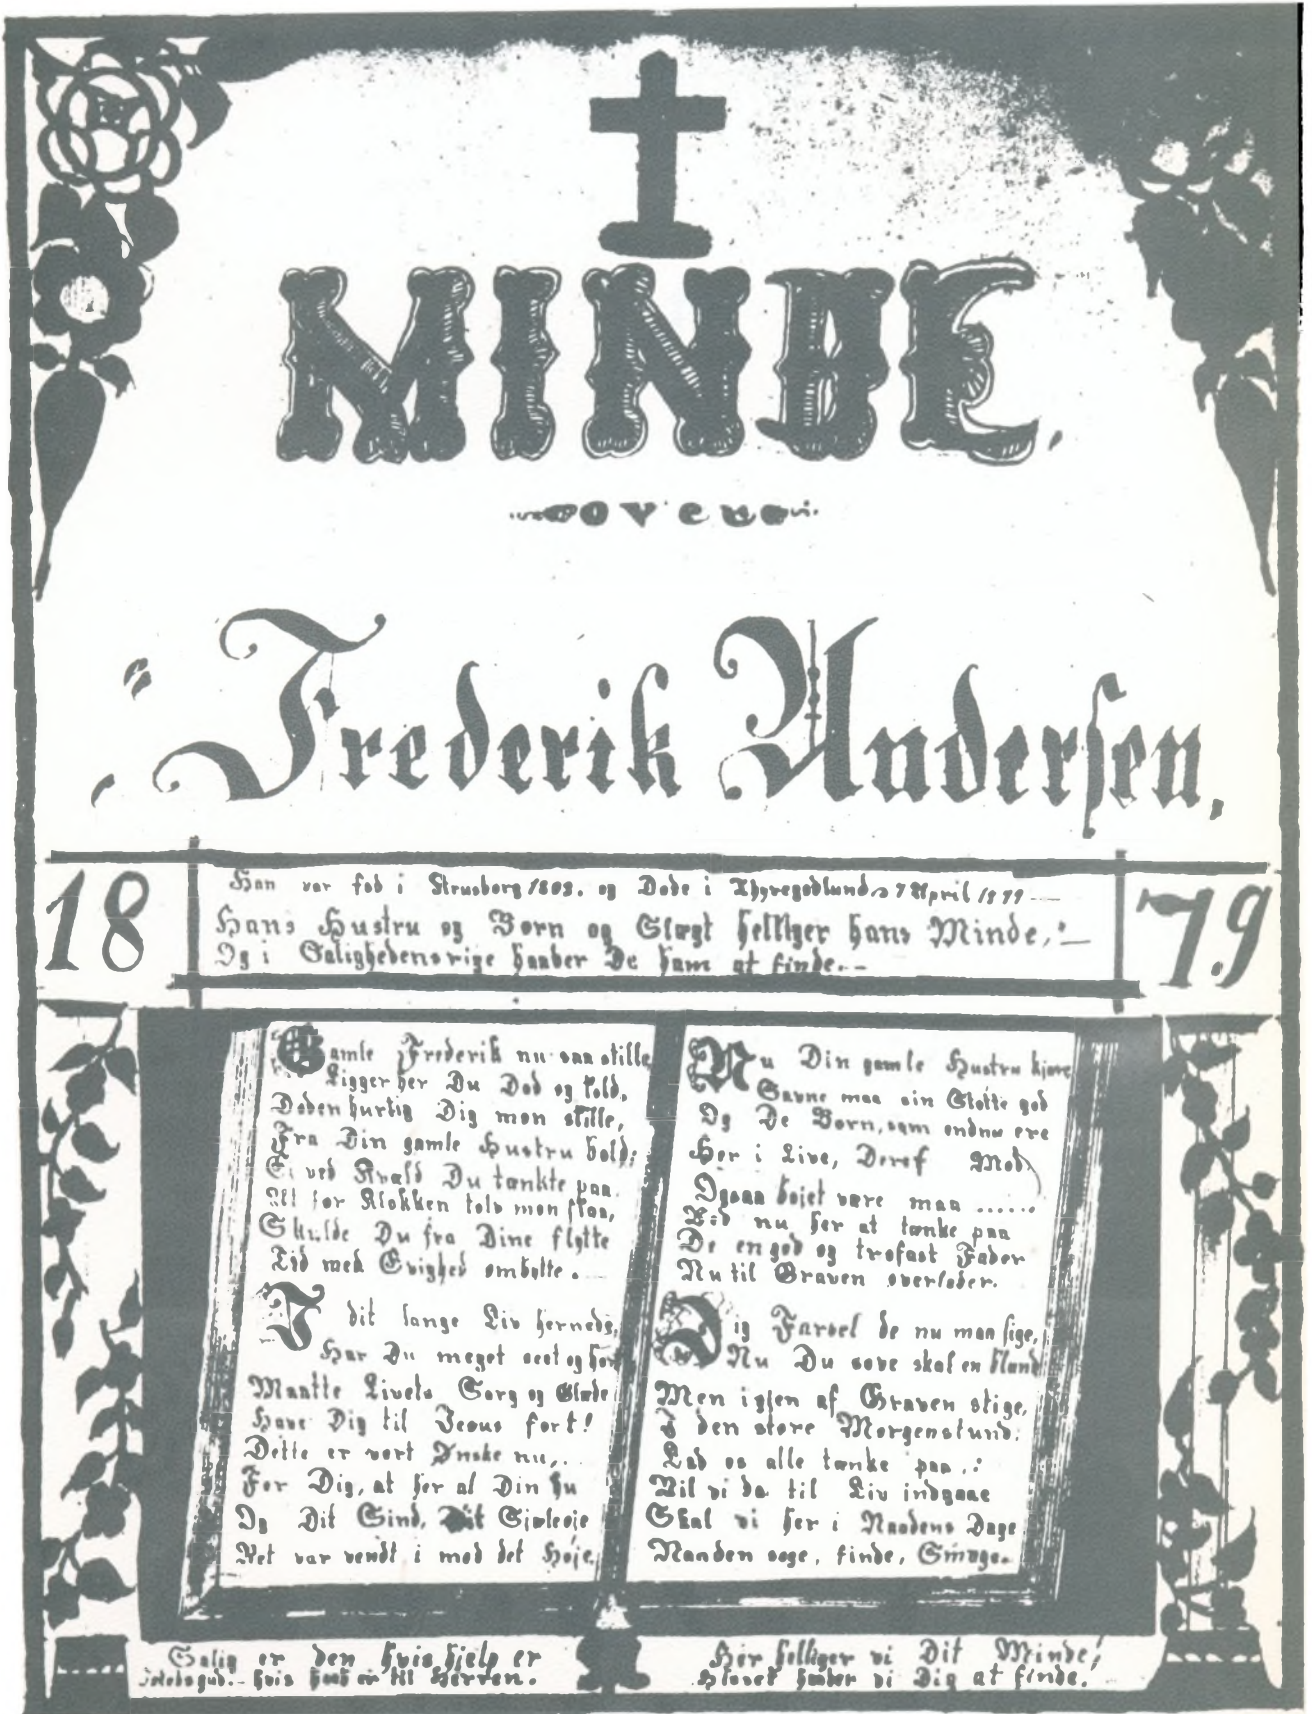 MINDE,
over
"Frederik Andersen,
18 79
Han var fød i Strusborg 1808. og Døde i Thyregodlund 7 April 1879
Hans Hustru og Børn og Slægt helliger hans Minde,
Og i Salighedens rige haaber De ham at finde.
Gamle Frederik nu saa stille
Ligger her Du Død og kold,
Døden hurtig Dig mon stille,
Fra Din gamle Hustru bold;
Ei ved Kvæld Du tænkte paa
At før Klokken tolv mon slaa,
Skulde Du fra Dine flytte
Tid med Evighed ombytte.
I dit lange Liv herneds,
Har Du meget seet og hørt
Maatte Livets Sorg og Glæde
Have Dig til Jesus ført!
Dette er vort Ønske nu,
For Dig, at her al Din hu
Og Dit Sind, Dit Sjæleøje
Ret var vendt i mod det Høje
Nu Din gamle Hustru kjære
Savne maa sin Støtte god
Og De Børn, som endnu ere
Her i Live, Deres Mod
Ogsaa bøjet være maa ......
Ved nu her at tænke paa
De en god og trofast Fader
Nu til Graven overlader.
Dig Farvel de nu maa sige,
Nu Du sove skal en Blund
Men igjen af Graven stige,
I den store Morgenstund.
Lad os alle tænke paa.:
Vil vi da til Liv indgaae
Skal vi her i Naadens Dage
Naaden søge, finde, Smage.
Salig er den hvis hjelp er
Jakobs gud. hvis haab er til Herren.
Her helliger vi Dit Minde!
Hisset haaber vi Dig at finde.